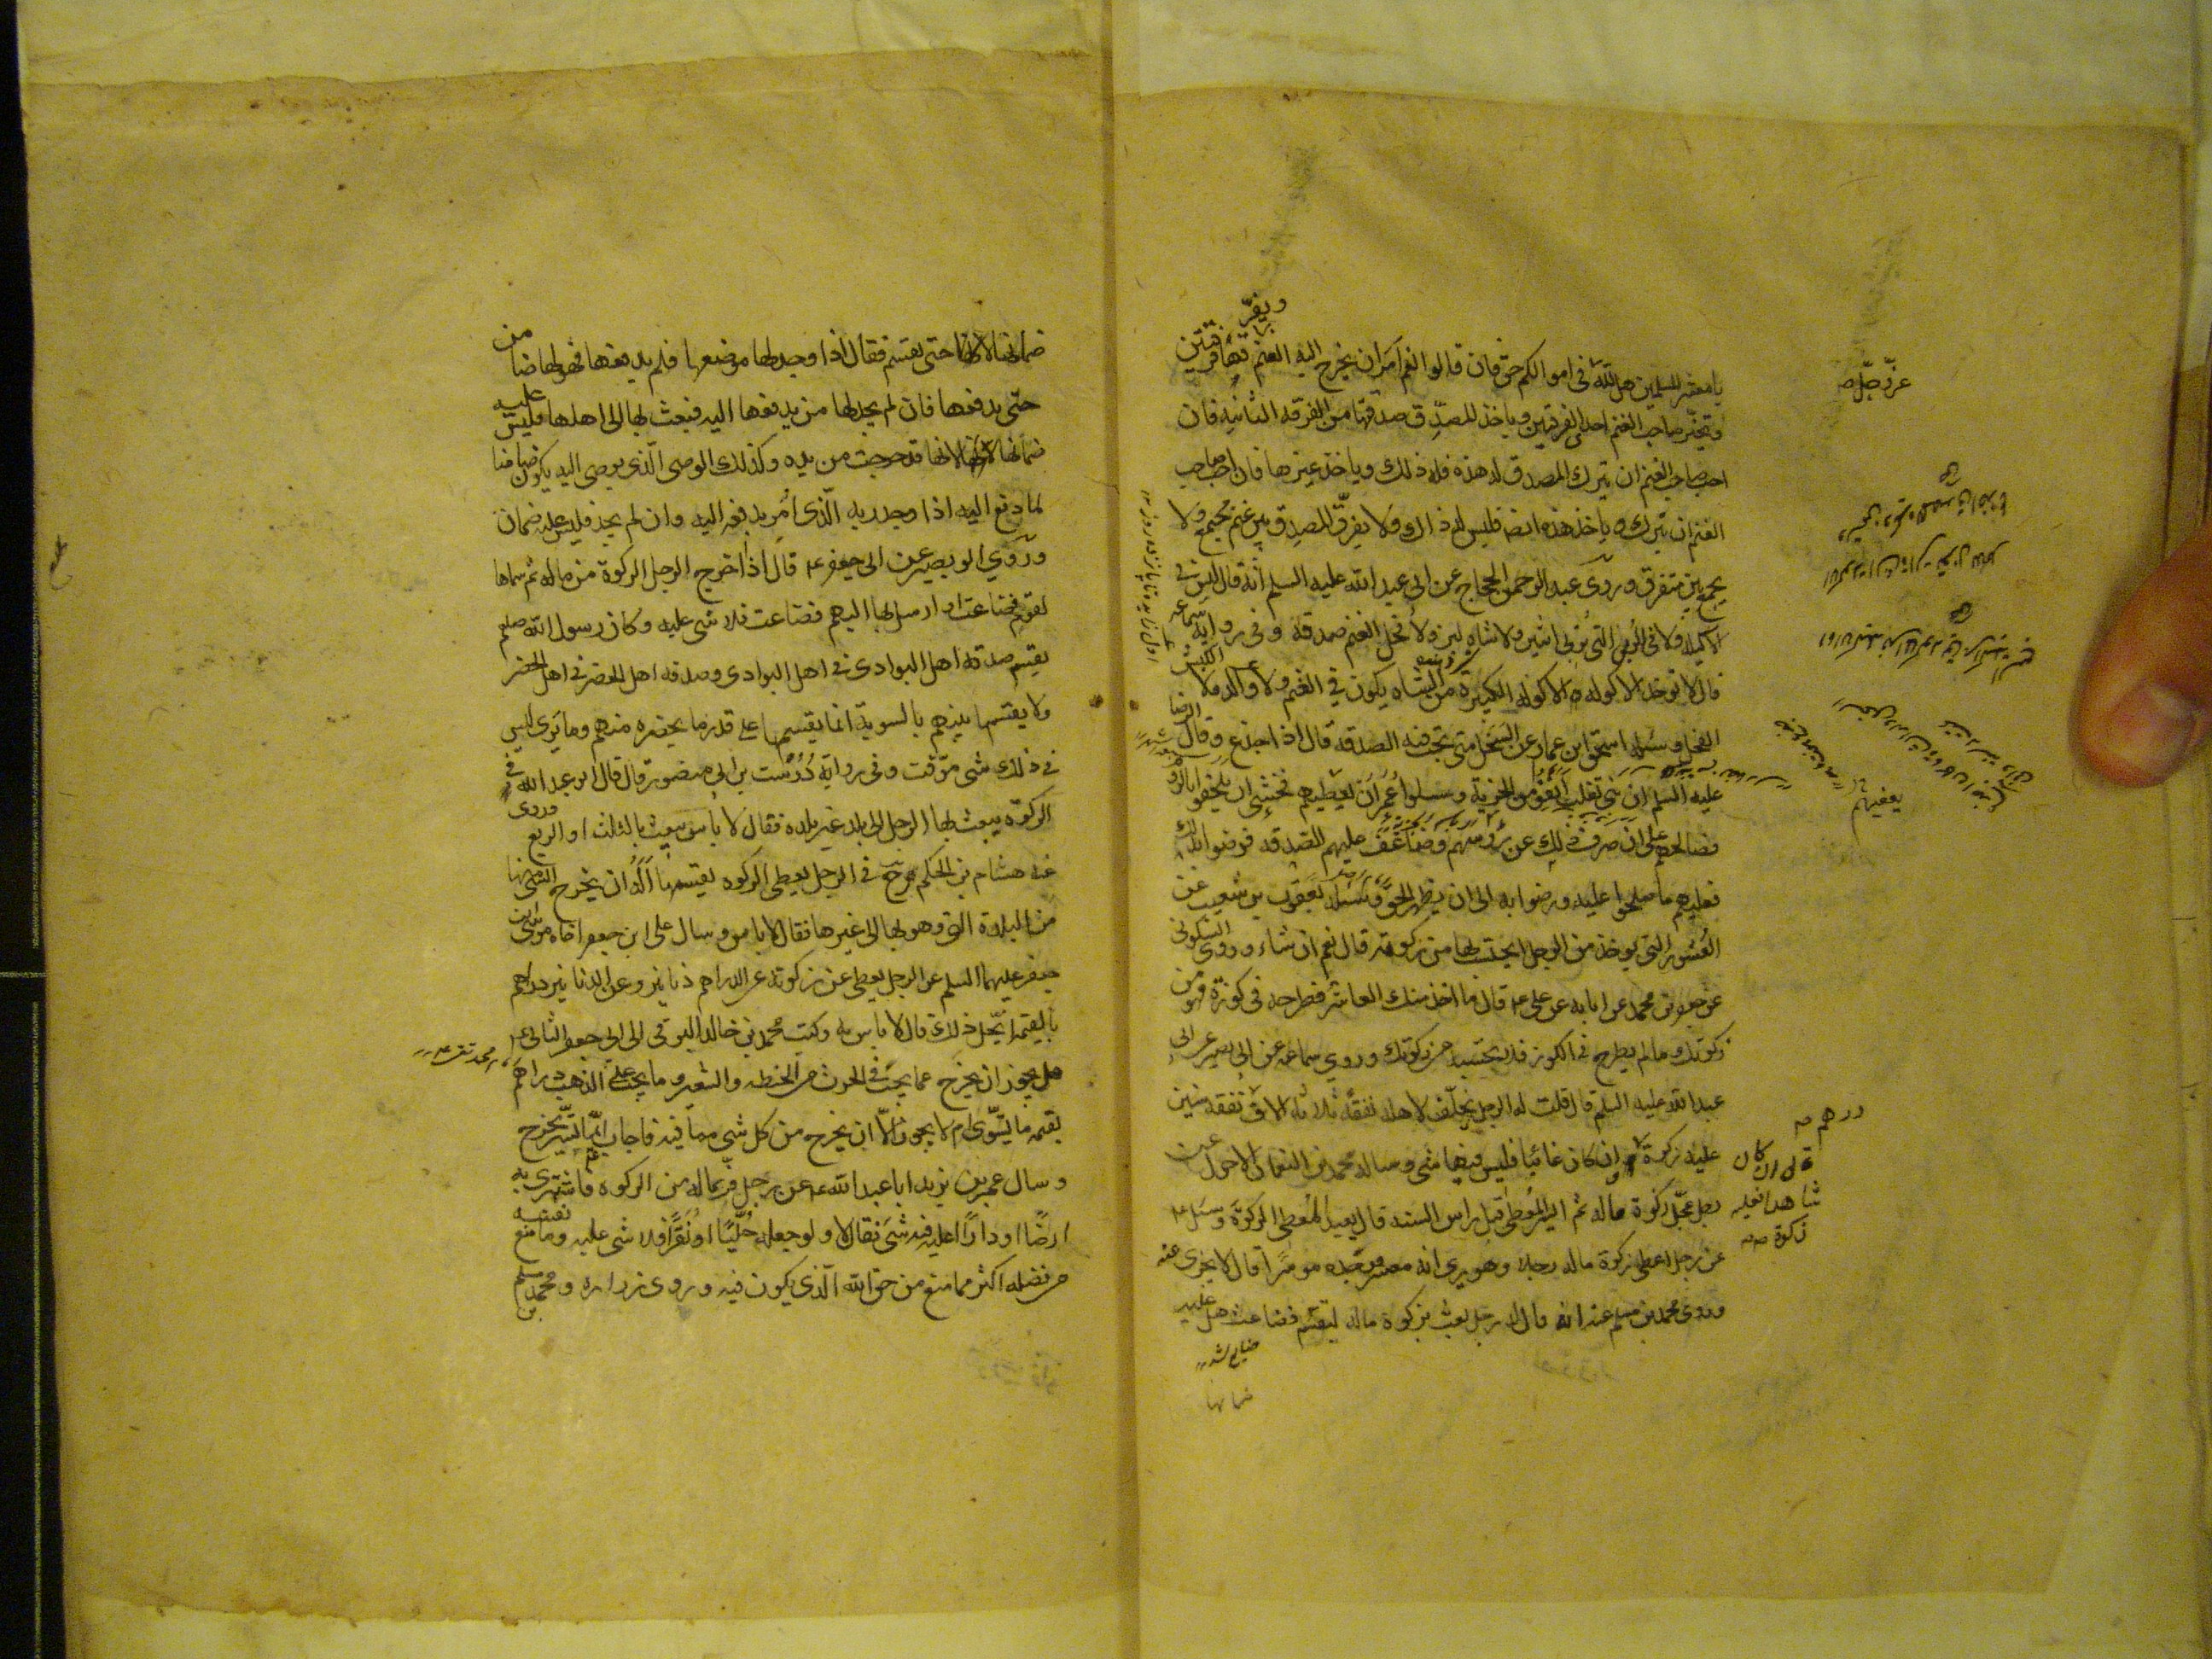 يا معشر المسلمين هل لله في اموالكم حق فان قالوا نعم امر ان يخرج اليه الغنم ويفرقها فرقتين
ويخير صاحب الغنم احدى الفرقتين وياخذ المصدق صدقتها من الفرقه الثانيه فان
احب صاحب الغنم ان يترك المصدق له هذه فله ذلك وياخذ غيرها فان احب صاحب
الغنم ان يترك وياخذ هذه ايضا فليس له ذلك ولا يفرق المصدق بين غنم مجتمع ولا
يجمع بين متفرق وروى عبد الرحمن الحجاج عن ابي عبد الله عليه السلم انه قال ليس في
الاكيلة ولا في الربى التي تربى اثنين ولا شاه لبن ولا فحل الغنم صدقه وفي روايه سماعه
قال لا توخذ الاكوله والاكوله الكبيرة من الشاه يكون في الغنم ولا والد ولا الكبش
الفحل وسئله اسحق ابن عمار عن السخل متى تجب فيه الصدقه قال اذا اجذع وقال الرضا
عليه السلم ان بني تغلب انفوا من الجزية وسالوا عمر ان يعفيهم فخشي ان يلحقوا بالروم
فصالحهم على ان صرف ذلك عن رؤسهم وضاعف عليهم الصدقه فرضوا بذلك
فعليهم ما صلحوا عليه ورضوا به الى ان يظهر الحق وسئله يعقوب بن شعيب عن
العشور التي يوخذ من الرجل ايحتسب بها من زكوته قال نعم ان شاء وروى السكوني
عن جعفر بن محمد عن ابايه عن علي ع قال ما اخذ منك العاشر فطرحه في كوزة فهو من
زكوتك وما لم يطرح في الكوز فلا تحتسبه من زكوتك وروي سماعه عن ابي بصير عن ابي
عبد الله عليه السلم قال قلت له الرجل يخلف لاهله نفقه ثلاثه الاف نفقه سنين
عليه زكوة ان كان غائبا فليس فيها شي وساله محمد بن النعمان الاحول عن
رجل عجل زكوة ماله ثم ايسر المعطى قبل راس السنه قال يعيد المعطي الزكوة وسئل ع
عن رجل اعطى زكوة ماله رجلا وهو يرى انه معسر فوجده موسرا قال لا يجزى عنه
وروى محمد بن مسلم عنه انه قال له رجل بعث بزكوة ماله ليقسم فضاعت هل عليه
ضمانها
عز وجل صح
يعفيهم
درهم صح
قال ان كان
شاهدا فعليه
زكوة صح
ضمانها حتى يقسم فقال اذا وجد لها موضعها فلم يدفعها فهو لها ضامن
حتى يدفعها فان لم يجد لها من يدفعها اليه فبعث بها الى اهلها فليس عليه
ضمانها لانها قد خرجت من يده وكذلك الوصي الذي يوصى اليه يكون ضامنا
لما دفع اليه اذا وجد ربه الذي امر بدفعه اليه وان لم يجد فليس عليه ضمان
وروي ابو بصير عن ابي جعفر ع قال اذا اخرج الرجل الزكوة من ماله ثم سماها
لقوم فضاعت او ارسل بها اليهم فضاعت فلا شي عليه وكان رسول الله صلعم
يقسم صدقه اهل البوادى في اهل البوادى وصدقه اهل الحضر في اهل الحضر
ولا يقسمها بينهم بالسوية انما يقسمها على قدر ما يحضره منهم وما يرى ليس
في ذلك شي موقت وفي روايه درست بن ابي منصور قال قال ابو عبد الله ع في
الزكوة يبعث بها الرجل الى بلد غير بلده فقال لا باس يبعث بالثلث او الربع وروى
عنه هشام بن الحكم في الرجل يعطى الزكوه يقسمها اله ان يخرج الشي منها
من البلدة التي هو بها الى غيرها فقال لا باس وسال علي ابن جعفر اخاه موسى بن
جعفر عليهما السلم عن الرجل يعطى عن زكوته عن الدراهم دنانير وعن الدنانير دراهم
بالقيمه ايحل ذلك قال لا باس به وكتب محمد بن خالد البرقي الى ابي جعفر الثاني ع
هل يجوز ان يخرج عما يجب في الحرث من الحنطه والشعير وما يجب على الذهب دراهم
بقيمه ما يسوى ام لا يجوز الا ان يخرج من كل شي ما فيه فاجاب ايما تيسر يخرج
وسال عمر بن يزيد ابا عبد الله ع عن رجل فر بماله من الزكوه فاشترى به
ارضا او دارا اعليه فيه شي فقال لا ولو جعله حليا او نقرا فلا شي عليه وما منع نفسه
من فضله اكثر مما منع من حق الله الذي يكون فيه وروى زراره ومحمد بن مسلم